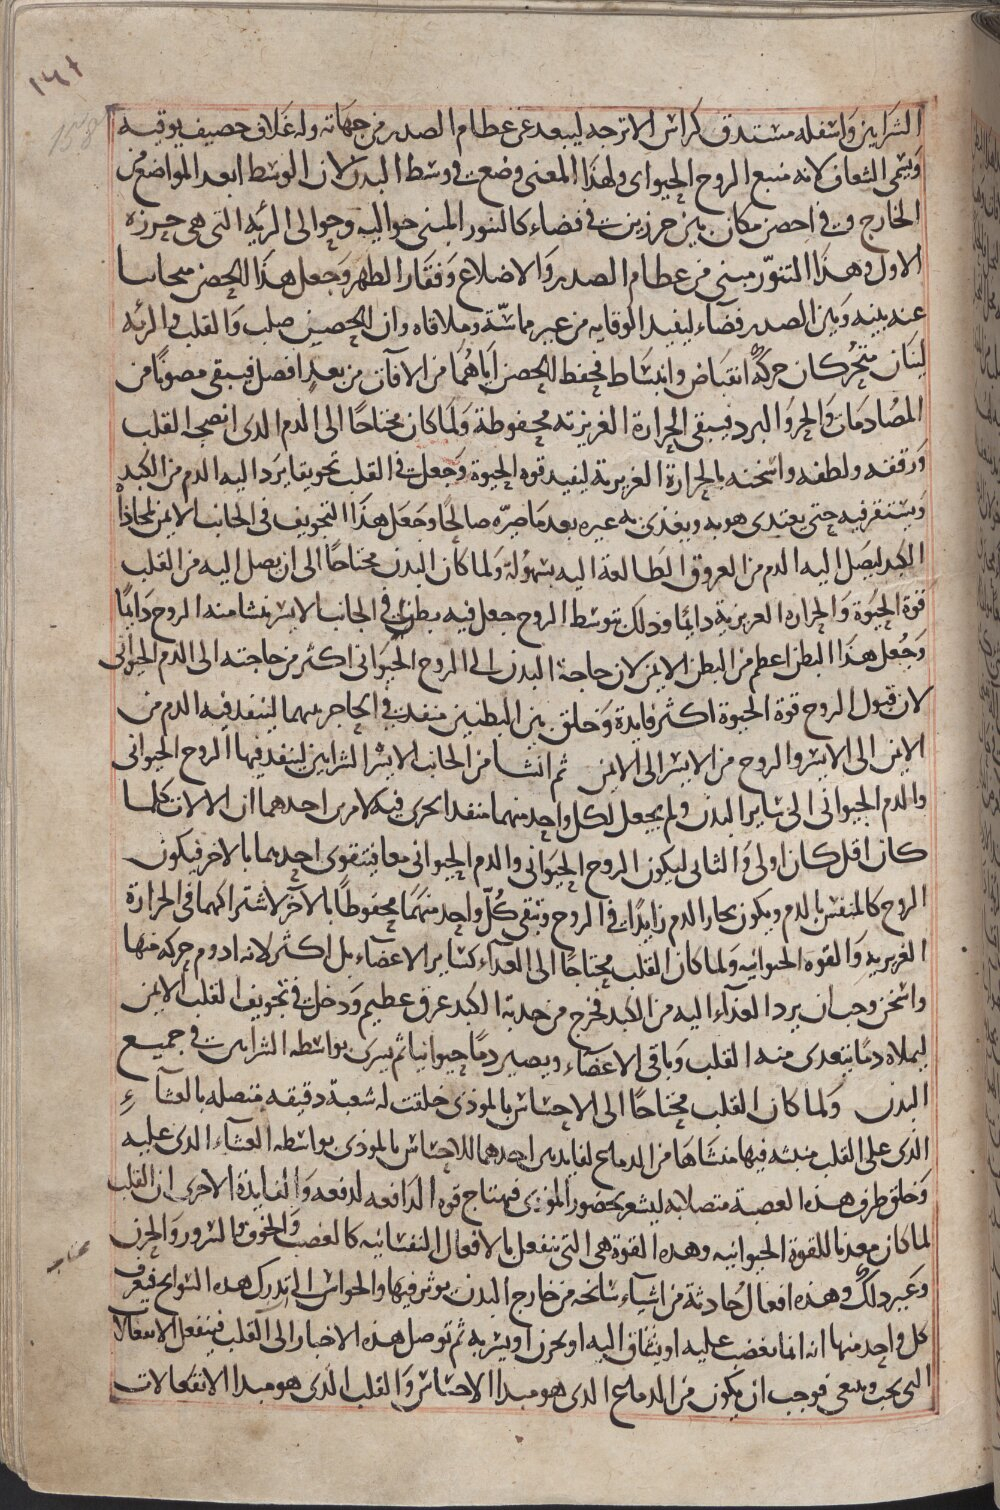 ١٣٨
158
الشرايين واسفله مستدق كراس الاترجه ليبعد عن عظام الصدر من جهاته وله غلاف حصيف يوقيه
ويسمى الشغاف لانه منبع الروح الحيواى ولهذا المعنى وضعت فى وسط البدن لان الوسط ابعد المواضع من
الخارج وفى احصن مكان بين حرزين فى فضاء كالتنور المبنى حواليه وحوالى الرئه التى هى حرزه
الاول وهذا التنور مبنى من عظام الصدر والاضلاع وفقار الظهر وجعل هذا الحصن
عنه بينه وبين الصدر فضاء ليفيد الوقايه من غير مماسة وملاقاه وان الحصن صلب والقلب والرئه
لينان متحركان حركة انقباض وانبساط فحفظ الحصن اياهما من الافات من بعد افضل فيبقى مصونا من
المصادمات والحر والبرد فيبقى الحرارة الغريزيه محفوظة ولما كان محتاحا الى الدم الدى انضجه القلب
ورققه ولطفه واسخنه بالحرارة الغريزية ليفيد قوه الحيوة وجعلت فى القلب تجويفا يرد اليه الدم من الكبد
ويستقر فيه حتى يغتدى هو به ويغذى به غيره بعد ما صيره صالحا وجعل هذا التجويف فى الجانب الايمن لمحاذاة
الكبد ليصل اليه الدم من العروق الطالعة اليه بسهولة ولما كان البدن محتاحا الى ان يصل اليه من القلب
قوة الحيوة والحراره الغريزية دايما وذلك بتوسط الروح جعل فيه بطن فى الجانب الايسر منشا منه الروح دايما
وجعل هذا البطن اعظم من البطن الايمن لان حاجة البدن الى الروح الحيوانى اكثر من حاجته الى الدم الحيوانى
لان قبول الروح قوة الحيوة اكثر فايدة وخلق بين البطنين منفذ فى الحاجز بينهما لينفد فيه الدم من
الايمن الى الايسر والروح من الايسر الى الايمن ثم انشا من الجانب الايسر الشرايين لينفد فيها الروح الحيوانى
والدم الحيوانى الى ساير البدن ولم يجعل لكل واحد منهما منفدا يجرى فيه لامرين احدهما ان الالات كلما
كان اقل كان اولى والثانى ليكون الروح الحيوانى والدم الحيوانى معا فيتقوى احدهما بالاخر فيكون
الروح كالمتنفس بالدم ويكون بخار الدم زايدا فى الروح وتبقى كل واحد منهما محفوظا بالآخر لاشتراكهما فى الحرارة
الغريزيه والقوه الحيوانيه ولما كان القلب محتاجا الى الغداء كساير الاعضاء بل اكثر لانه ادوم حركه منها
واسخن وجب ان يرد الغذاء اليه من الكبد فخرج من حدبة الكبد عرق عظيم ودخل فى تجويف القلب الايمن
ليملاه دما يتغدى منه القلب وباقى الاعضاء ويصير دما حيوانيا ثم يسرى بواسطه الشرايين فى جميع
البدن ولما كان القلب محتاجا الى الاحساس بالموذى خلقت له شعبة دقيقه متصله بالغشاء
الدى على القلب منبثه فيها منشاها من الدماغ لفايدتين احدهما للاحساس بالموذى بواسطه الغشاء الدى عليه
وخلق طرف هذه العصبة متصلا به ليشعر بحضور الموذى فيهتاج قوه الدافعه لدفعه والفايدة الاخرى ان القلب
لما كان معدنا للقوة الحيوانيه وهده القوة هى التى تنفعل بالافعال النفسانيه كالغضب والخوف والسرور والحزن
وغير ذلك وهذه افعال حادثة من اشياء سانحه من خارج البدن يوثر فيها والحواس التى تدرك هده السوانح فيعرف
كل واحد منها انه انما يغضب عليه او يشتاق اليه او يحزن او يسر به ثم توصل هذه الاخبار الى القلب فينفعل الانفعالات
التى يجب وينبغى فوجب ان يكون من الدماغ الدى هو مبدا الاحساس والقلب الدى هو مبدا الانفعالات